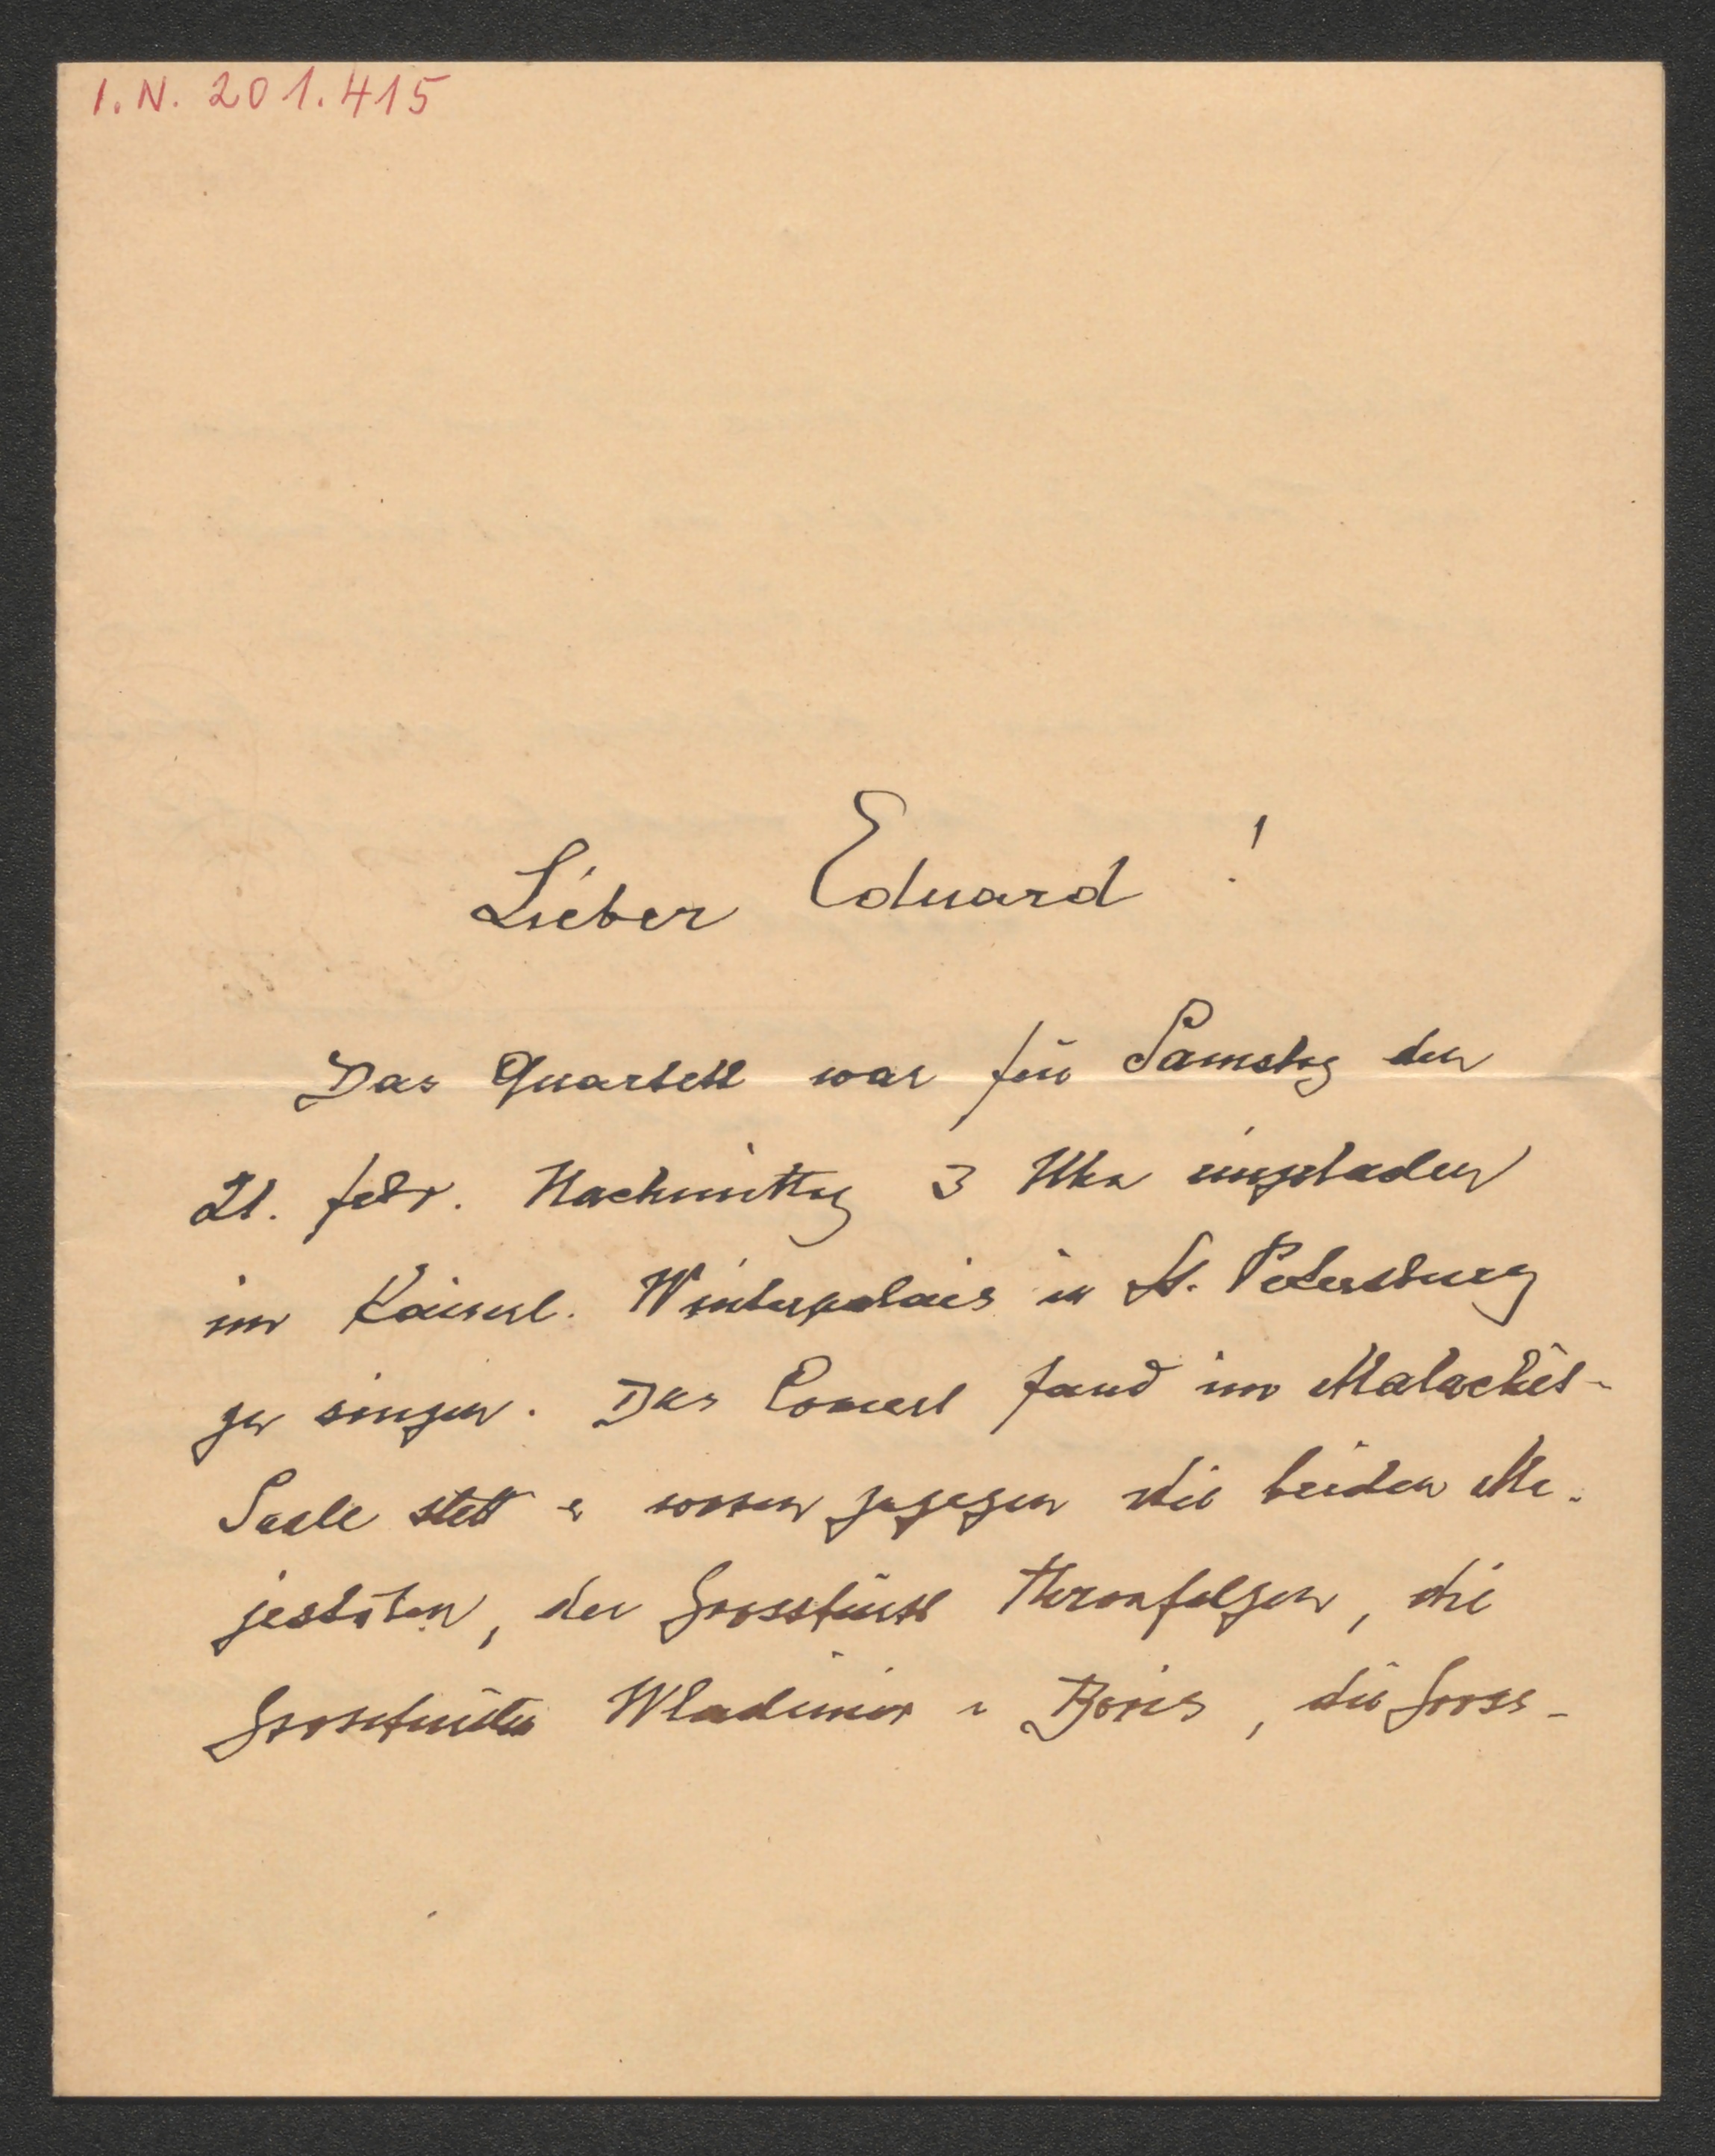 I.N. 201.415
Lieber Eduard!
Das Quartett war für Samstag den
21. Febr. Nachmittag 3 Uhr eingeladen
im Kaiserl. Winterpalais in St. Petersburg
zu singen. Das Concert fand im Malachit-
Saale statt u waren zugegen die beiden Ma-
jestäten, der Grossfürst Thronfolger, die
Grossfürsten Wladimir u Boris, die Gross-